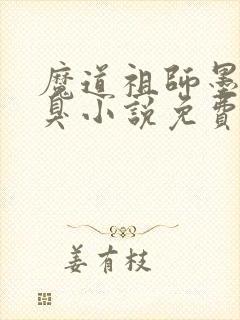 魔道祖師墨
臭小說免費
姜有枝